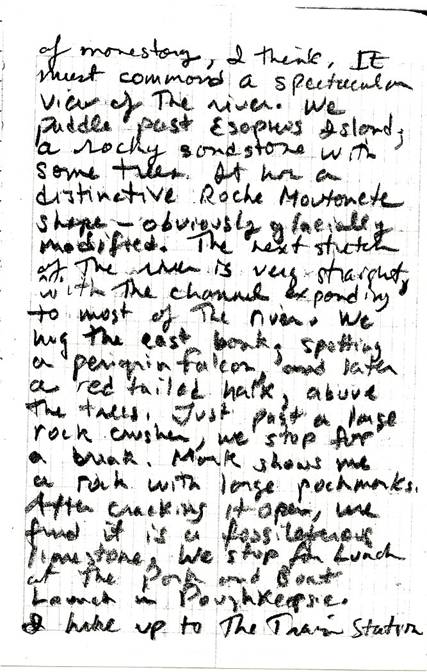 of monestory, I think. It
must command a spectacular
view of The river. We
paddle past Esophus Island,
a rocky sandstone with
some trees. It has a
distinctive Roche Moutonete
shape - obviously glacially
modified. The next stretch
of The river is very straight,
with The channel expanding
to most of The river. We
hug The east bank, spotting
a perigrin falcon, and later
a red tailed halk, above
The trees. Just past a large
rock crusher, we stop for
a break. Mark shows me
a rock with large pochmarks.
After cracking it open, we
find it is a fossiliferous
limestone. We stop for Lunch
at the Park and Boat
Launch in Poughkeepsie.
I hike up to The Train Station